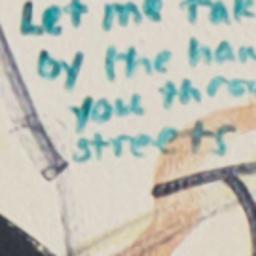 Let me tak
by the han
you thro
streets